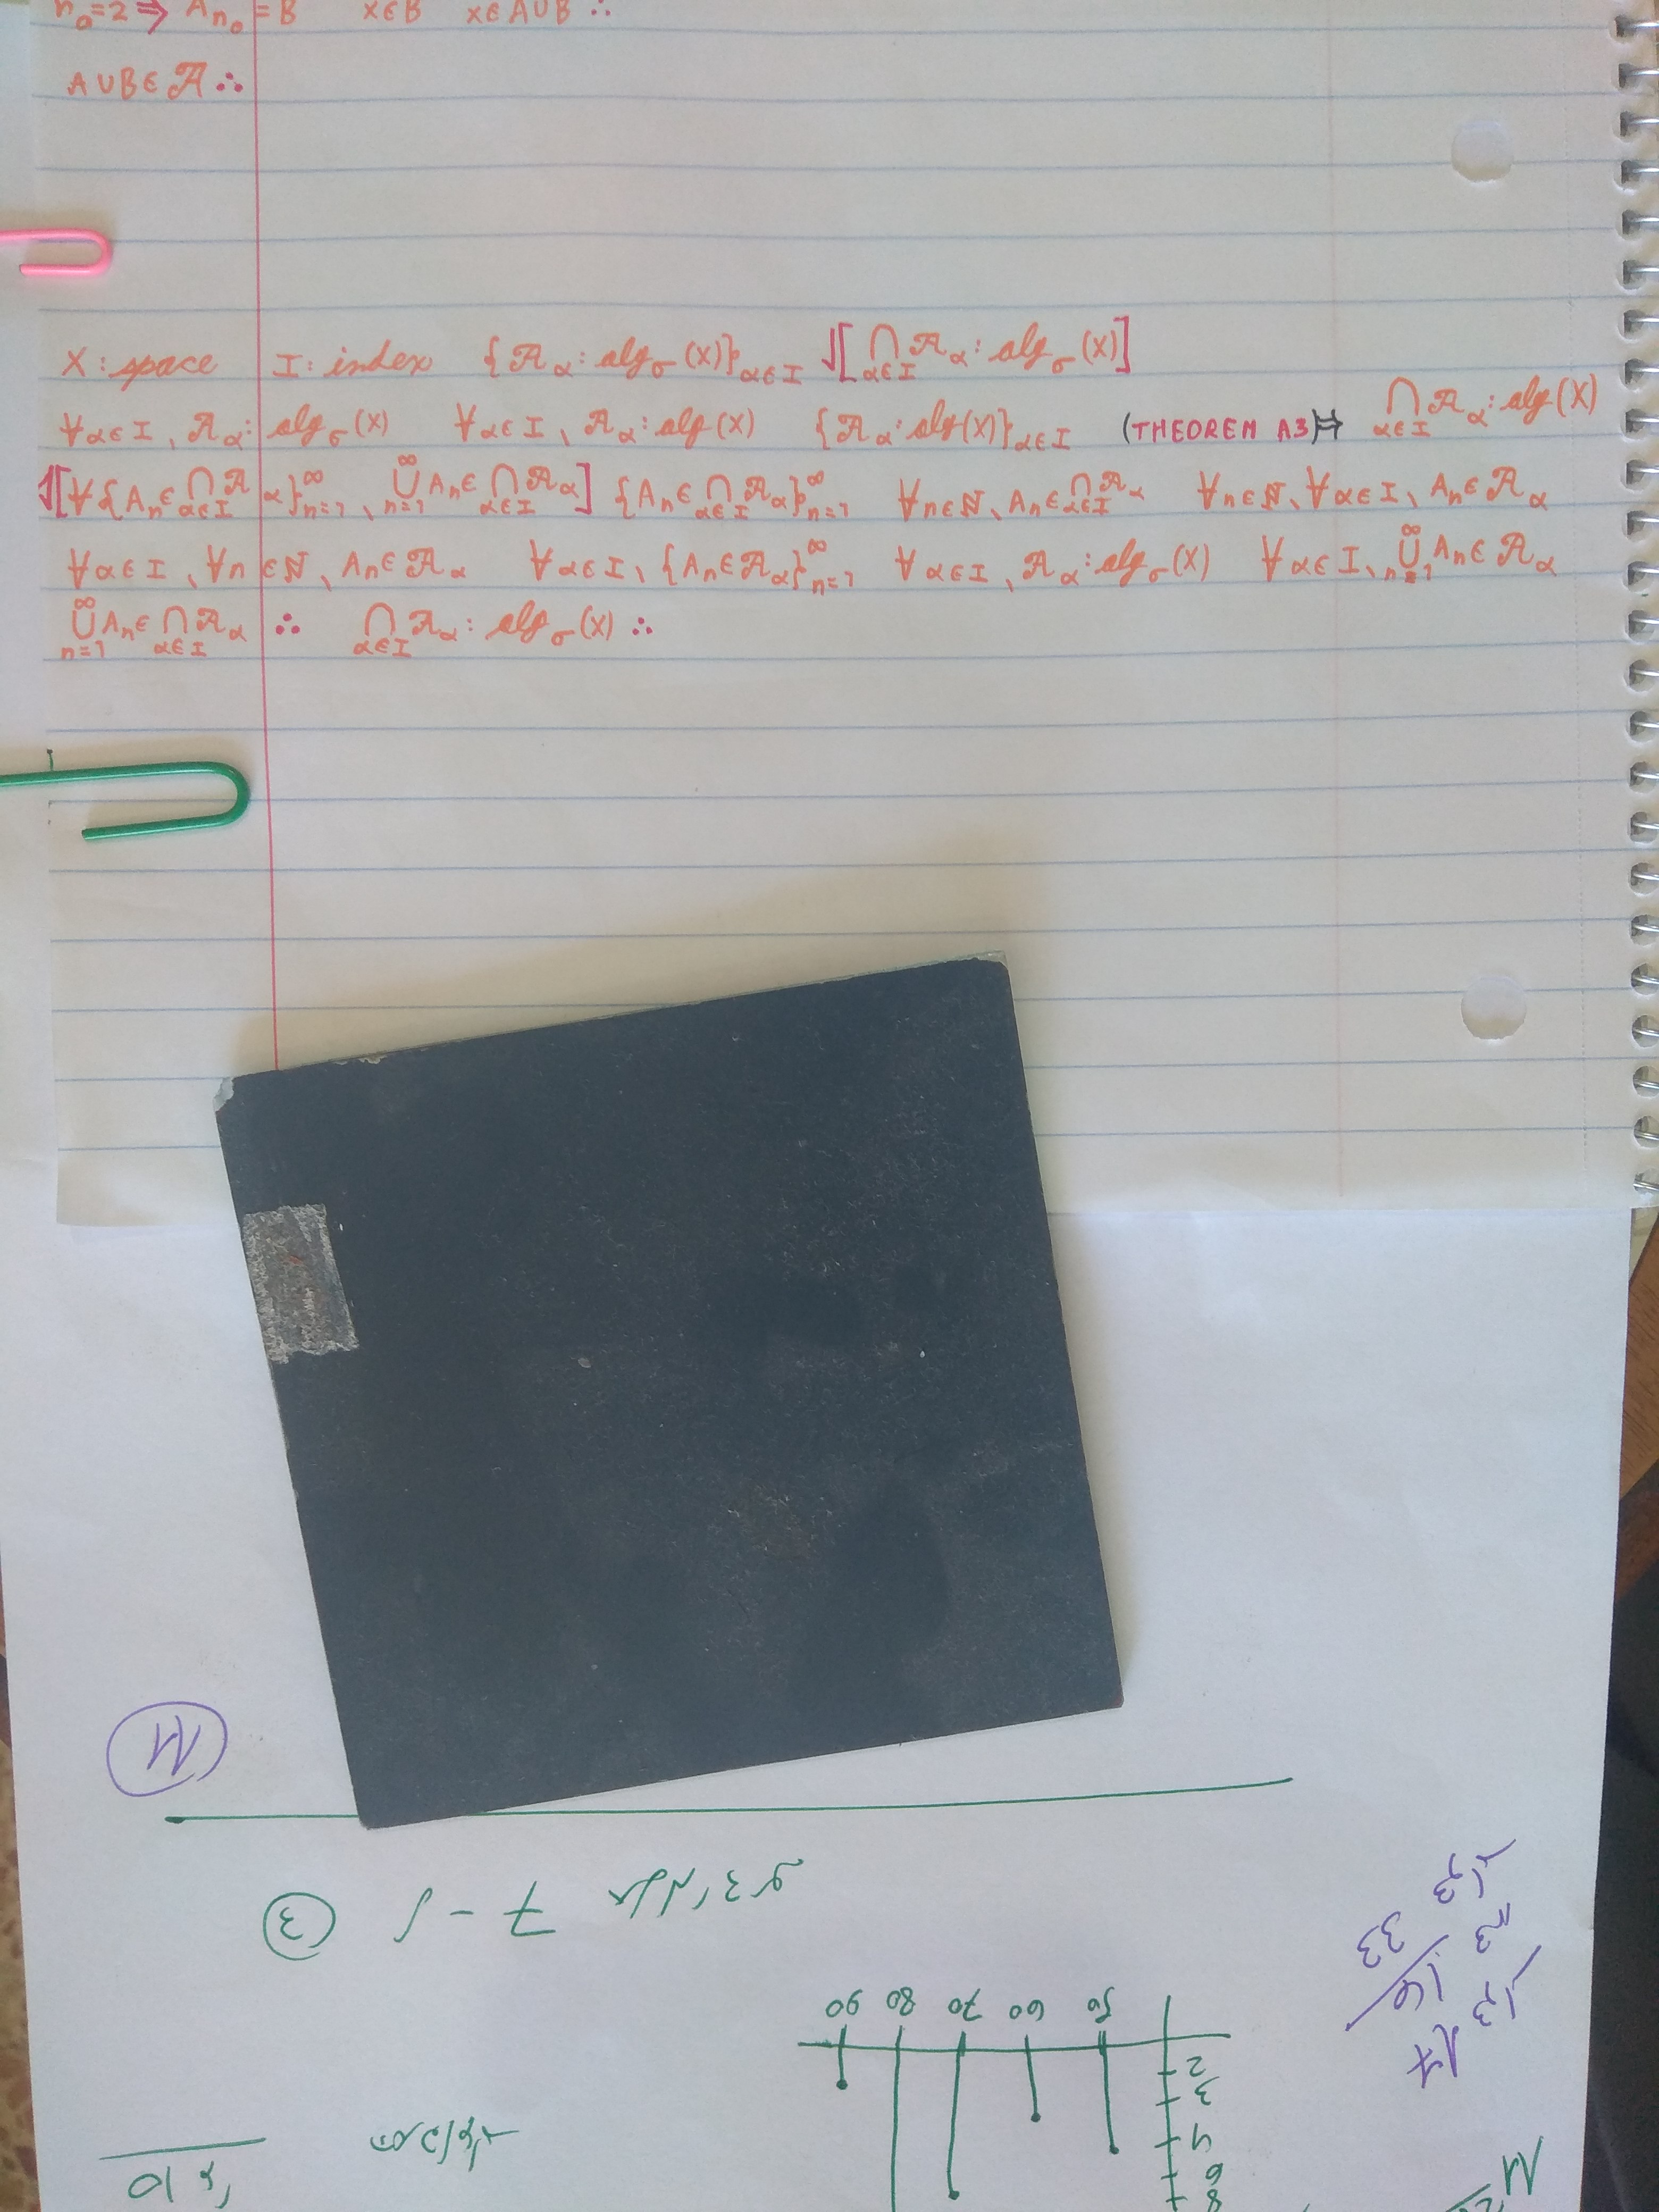 n₀=2 ⇒ Aₙ₀ = B x∈B x∈A∪B ∴
A∪B∈𝒜 ∴
X: space I: index {𝒜_α: alg_σ(X)}_{α∈I} ⇃[⋂_{α∈I} 𝒜_α: alg_σ(X)]
∀α∈I, 𝒜_α: alg_σ(X) ∀α∈I, 𝒜_α: alg(X) {𝒜_α: alg(X)}_{α∈I} (THEOREM A3)⇒ ⋂_{α∈I} 𝒜_α: alg(X)
⇃[∀{Aₙ∈⋂_{α∈I} 𝒜_α}_{n=1}^∞, ⋃_{n=1}^∞ Aₙ∈⋂_{α∈I} 𝒜_α] {Aₙ∈⋂_{α∈I} 𝒜_α}_{n=1}^∞ ∀n∈ℕ, Aₙ∈⋂_{α∈I} 𝒜_α ∀n∈ℕ, ∀α∈I, Aₙ∈𝒜_α
∀α∈I, ∀n∈ℕ, Aₙ∈𝒜_α ∀α∈I, {Aₙ∈𝒜_α}_{n=1}^∞ ∀α∈I, 𝒜_α: alg_σ(X) ∀α∈I, ⋃_{n=1}^∞ Aₙ∈𝒜_α
⋃_{n=1}^∞ Aₙ∈⋂_{α∈I} 𝒜_α ∴ ⋂_{α∈I} 𝒜_α: alg_σ(X) ∴
3
90 80 70 60 50
2
3
4
6
8
33
16
17